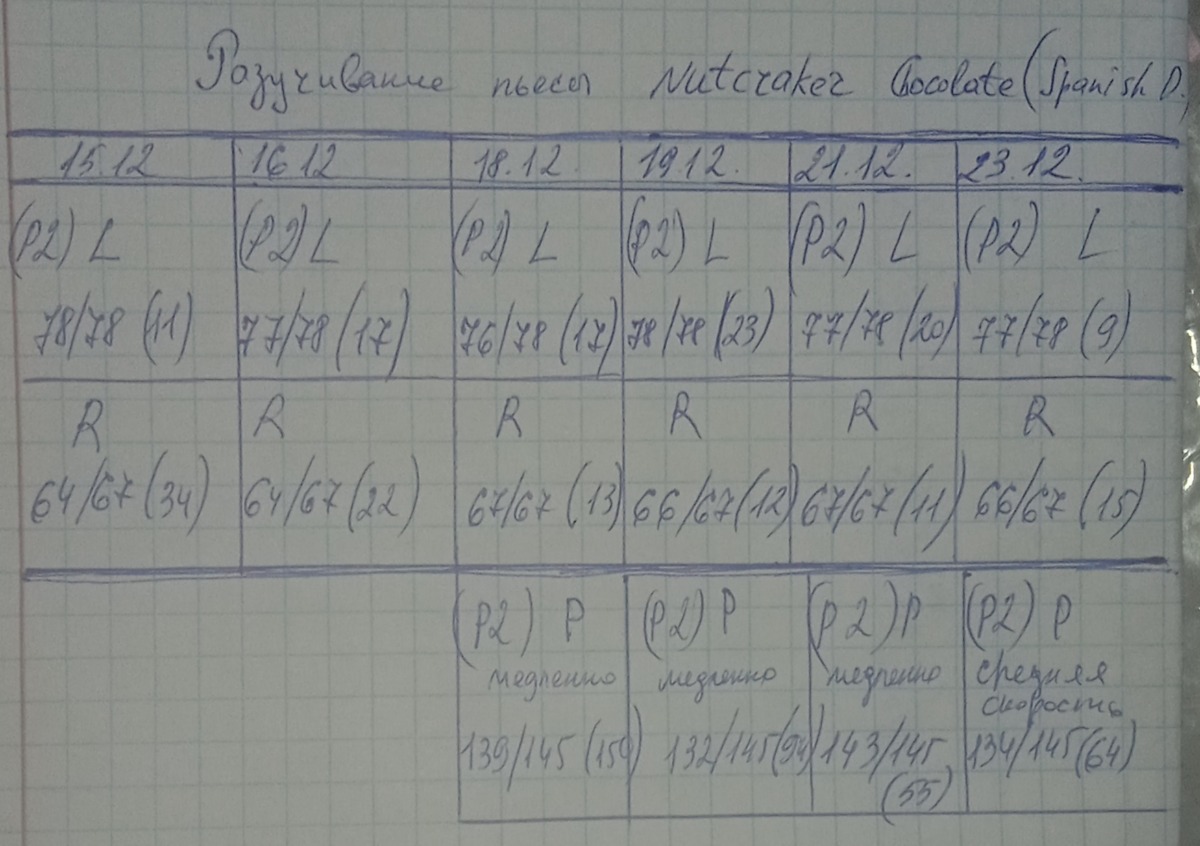 Разучивание пьесы Nutcraker Chocolate (Spanish D.
15.12 16 12 18.12. 19.12. 21.12. 23.12.
(P2) L (P2) L (P2) L (P2) L (P2) L (P2) L
78/78 (11) 77/78 (17) 76/78 (17) 78/78 (23) 77/78 (20) 77/78 (9)
R R R R R R
64/67 (34) 64/67 (22) 67/67 (13) 66/67 (12) 67/67 (11) 66/67 (15)
(P2) P (P2) P (P2) P (P2) P
медленно медленно медленно средняя
скорость
139/145 132/145 143/145 134/145 (64)
(55)